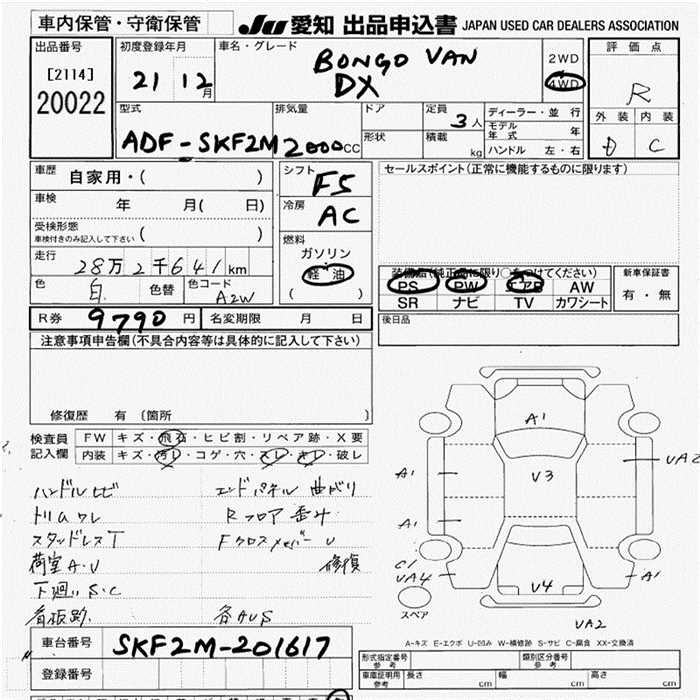 車内保管・守衛保管
JU 愛知 出品申込書 JAPAN USED CAR DEALERS ASSOCIATION
出品番号
[2114]
20022
初度登録年月
21 12月
車名・グレード
BONGO VAN
DX
2WD
4WD
評価点
R
外装 内装
D C
型式
ADF-SKF2M
排気量
2000cc
ドア
形状
定員
3人
積載
kg
ディーラー・並行
モデル年式 年
ハンドル 左・右
車歴
自家用・( )
車検
年 月( 日)
受検形態
車検付きのみ記入して下さい ( )
走行
28万2千641km
色
白 色替
色コード
A2W
シフト
F5
冷房
AC
燃料
ガソリン
軽油
( )
セールスポイント(正常に機能するものに限ります)
装備品(純正品に限り○をつけてください)
PS PW エアB AW
SR ナビ TV カワシート
新車保証書
有・無
R券 9790円 名変期限 月 日
後日品
注意事項申告欄(不具合内容等は具体的に記入して下さい)
修復歴 有 (箇所 )
検査員記入欄
FW キズ・飛石・ヒビ割・リペア跡・X要
内装 キズ・汚レ・コゲ・穴・スレ・キレ・破レ
ハンドルヒビ
トリムワレ
スタッドレスT
荷室A・U
下廻いS・C
看板跡
エンドパネル曲がり
Rフロア歪み
Fクロスメンバー U
修復
各AUS
A1
V3
V4
A1
A1
C1
UA4
UA2
A1
UA2
スペア
A-キズ E-エクボ U-凹み W-補修跡 S-サビ C-腐食 XX-交換済
車台番号 SKF2M-201617
登録番号
形式指定番号
参考
類別区分番号
参考
車庫証明用
参考
長さ cm
幅 cm
高さ cm